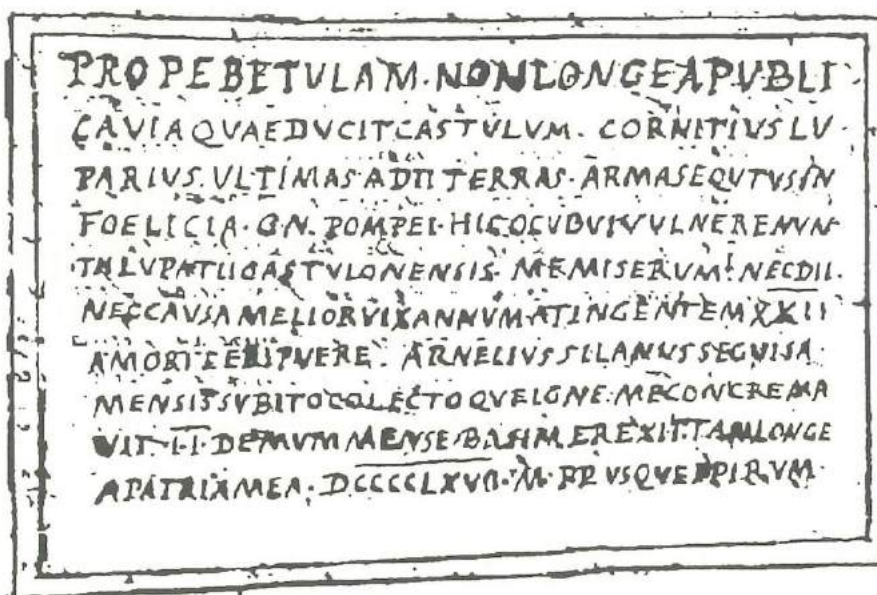 PROPEBETVLAM·NONLONGEAPVBLI
CAVIAQVAEDVCITCASTVLVM· CORNITIVSLV
PARIVS·VLTIMAS·ADII TERRAS·ARMASEQVTVSIN
FOELICIA·GN·POMPEI·HICOCVBVIVVLNERENVN
CASTVLONENSIS· MEMISERVM! NECDII·
NECCAVSAMELIORVIXANNVMATINGENTEMXXII
AMORTEERIPVERE· ARNELIVSSILANVSSEGVISA
MENSISSVBITOCOLECTOQVEIGNE·MECONCREMA
VIT·II·DEMVMMENSE·BASIMEREXIT·TAMLONGE
APATRIAMEA·